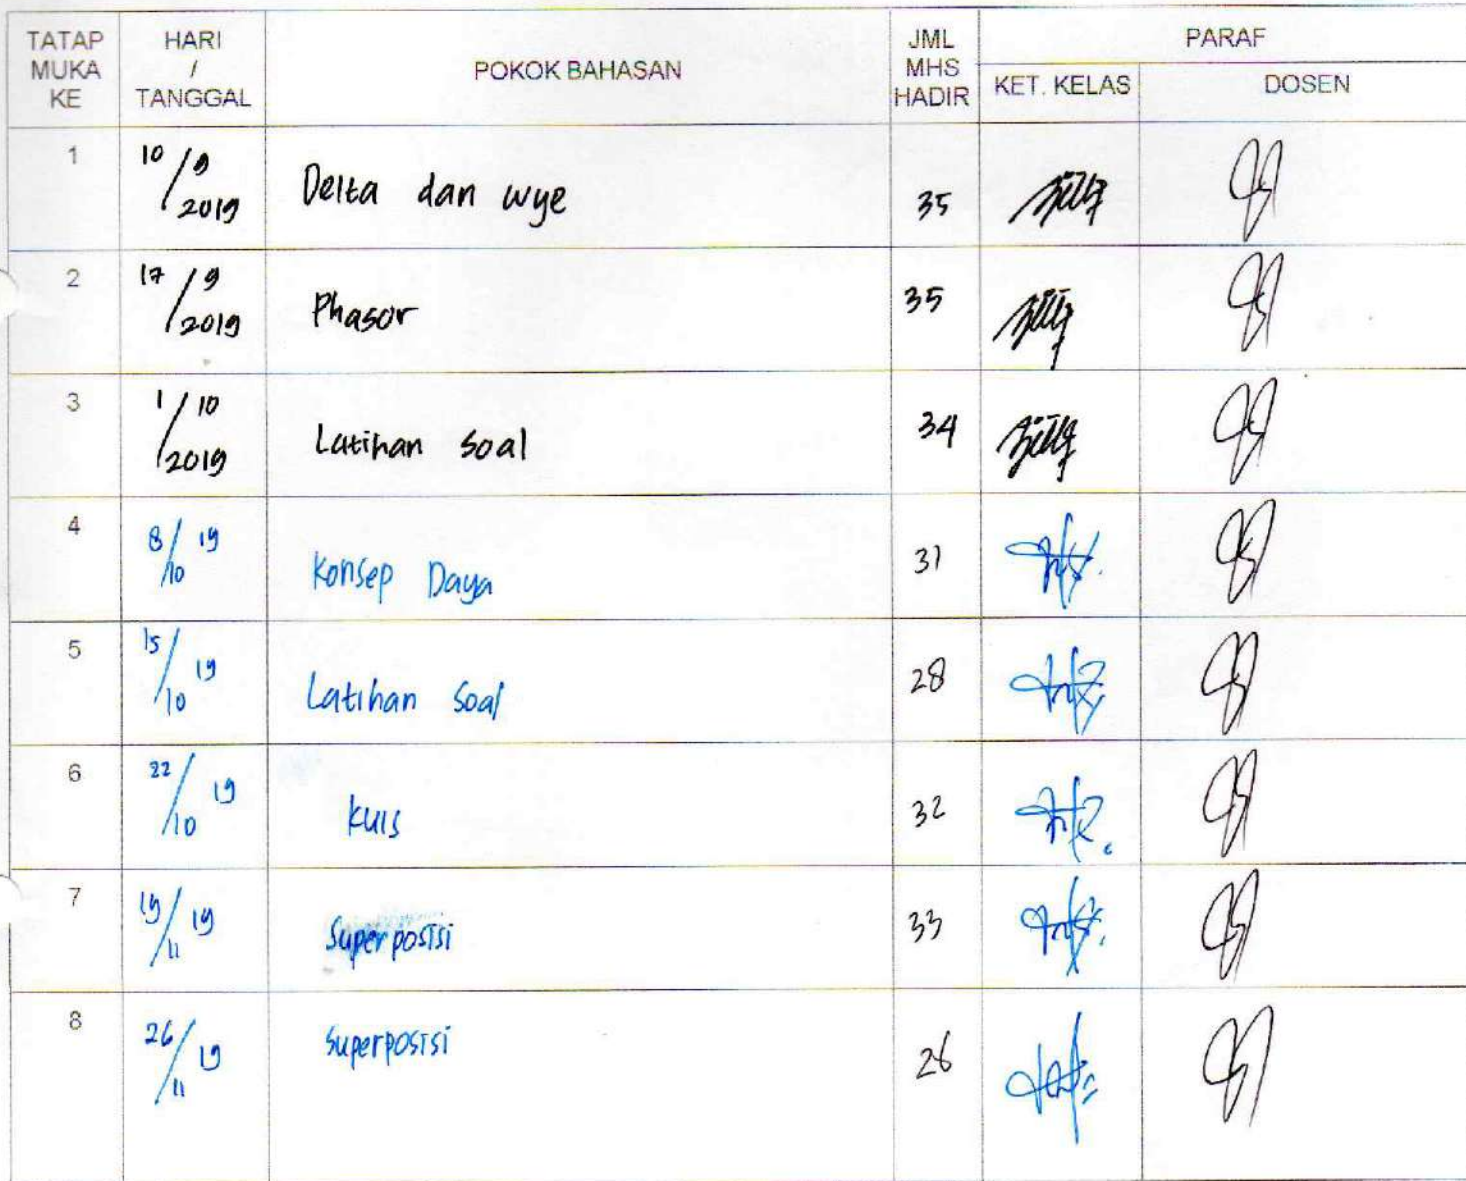 TATAP MUKA KE HARI / TANGGAL POKOK BAHASAN JML MHS HADIR PARAF
KET. KELAS DOSEN
1 10/9 2019 Delta dan wye 35
2 17/9 2019 Phasor 35
3 1/10 2019 Latihan soal 34
4 8/10 19 Konsep Daya 31
5 15/10 19 Latihan Soal 28
6 22/10 19 kuis 32
7 19/11 19 Superposisi 33
8 26/11 19 Superposisi 26